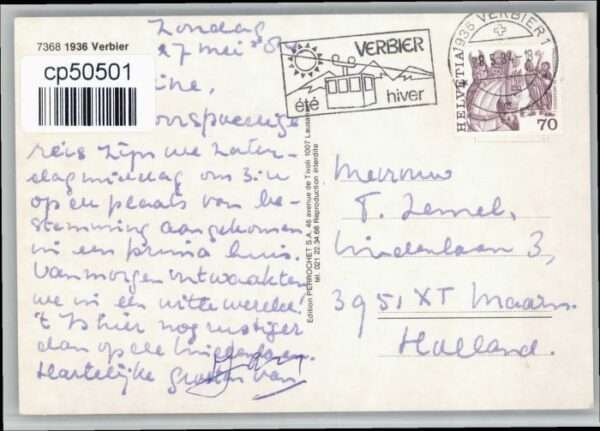 7368 1936 Verbier
cp50501
Zondag
27 mei '84
ine,
voorspoedige
reis zijn we zater-
dagmiddag om 3 u
op de plaats van be-
stemming aangekomen
in een prima huis.
Vanmorgen ontwaakten
we in een witte wereld!
't Is hier nog rustiger
dan op de Lindenlaan.
Hartelijke groeten van
Edition PERROCHET S.A. 46 avenue de Tivoli 1007 Lausanne
tel. 021 22.34.68 Reproduction interdite
VERBIER
été hiver
1936 VERBIER 1
HELVETIA
70
Mevrouw
T. Zemel,
Lindenlaan 3,
3951 XT Maarn.
Holland.